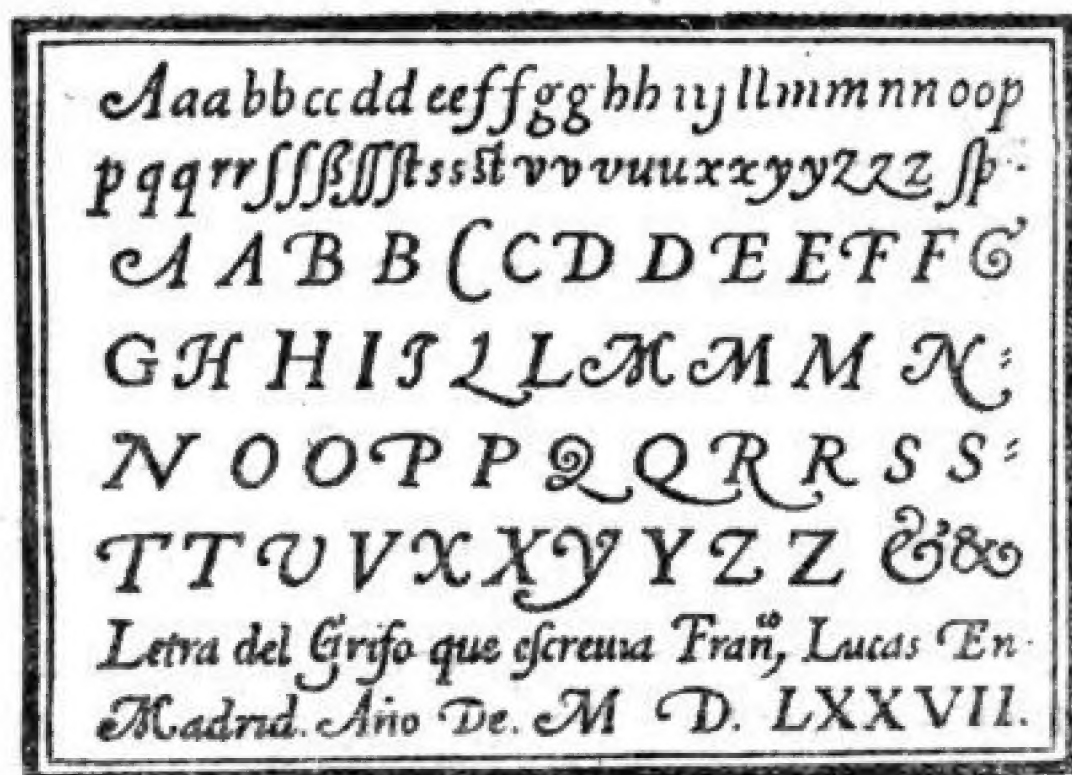 Aaabbccddeeffgghhııjllmmnnoop
pqqrrſſſßſſſtssstvvvuuuxxyyzzz ſp
A A B B C C D D E E F F G
G H H I J L L M M M N
N O O P P Q Q R R S S
T T V V X X Y Y Z Z & &
Letra del Grifo que eſcreuia Franᶜᵒ, Lucas En
Madrid. Año De. M D. LXXVII.